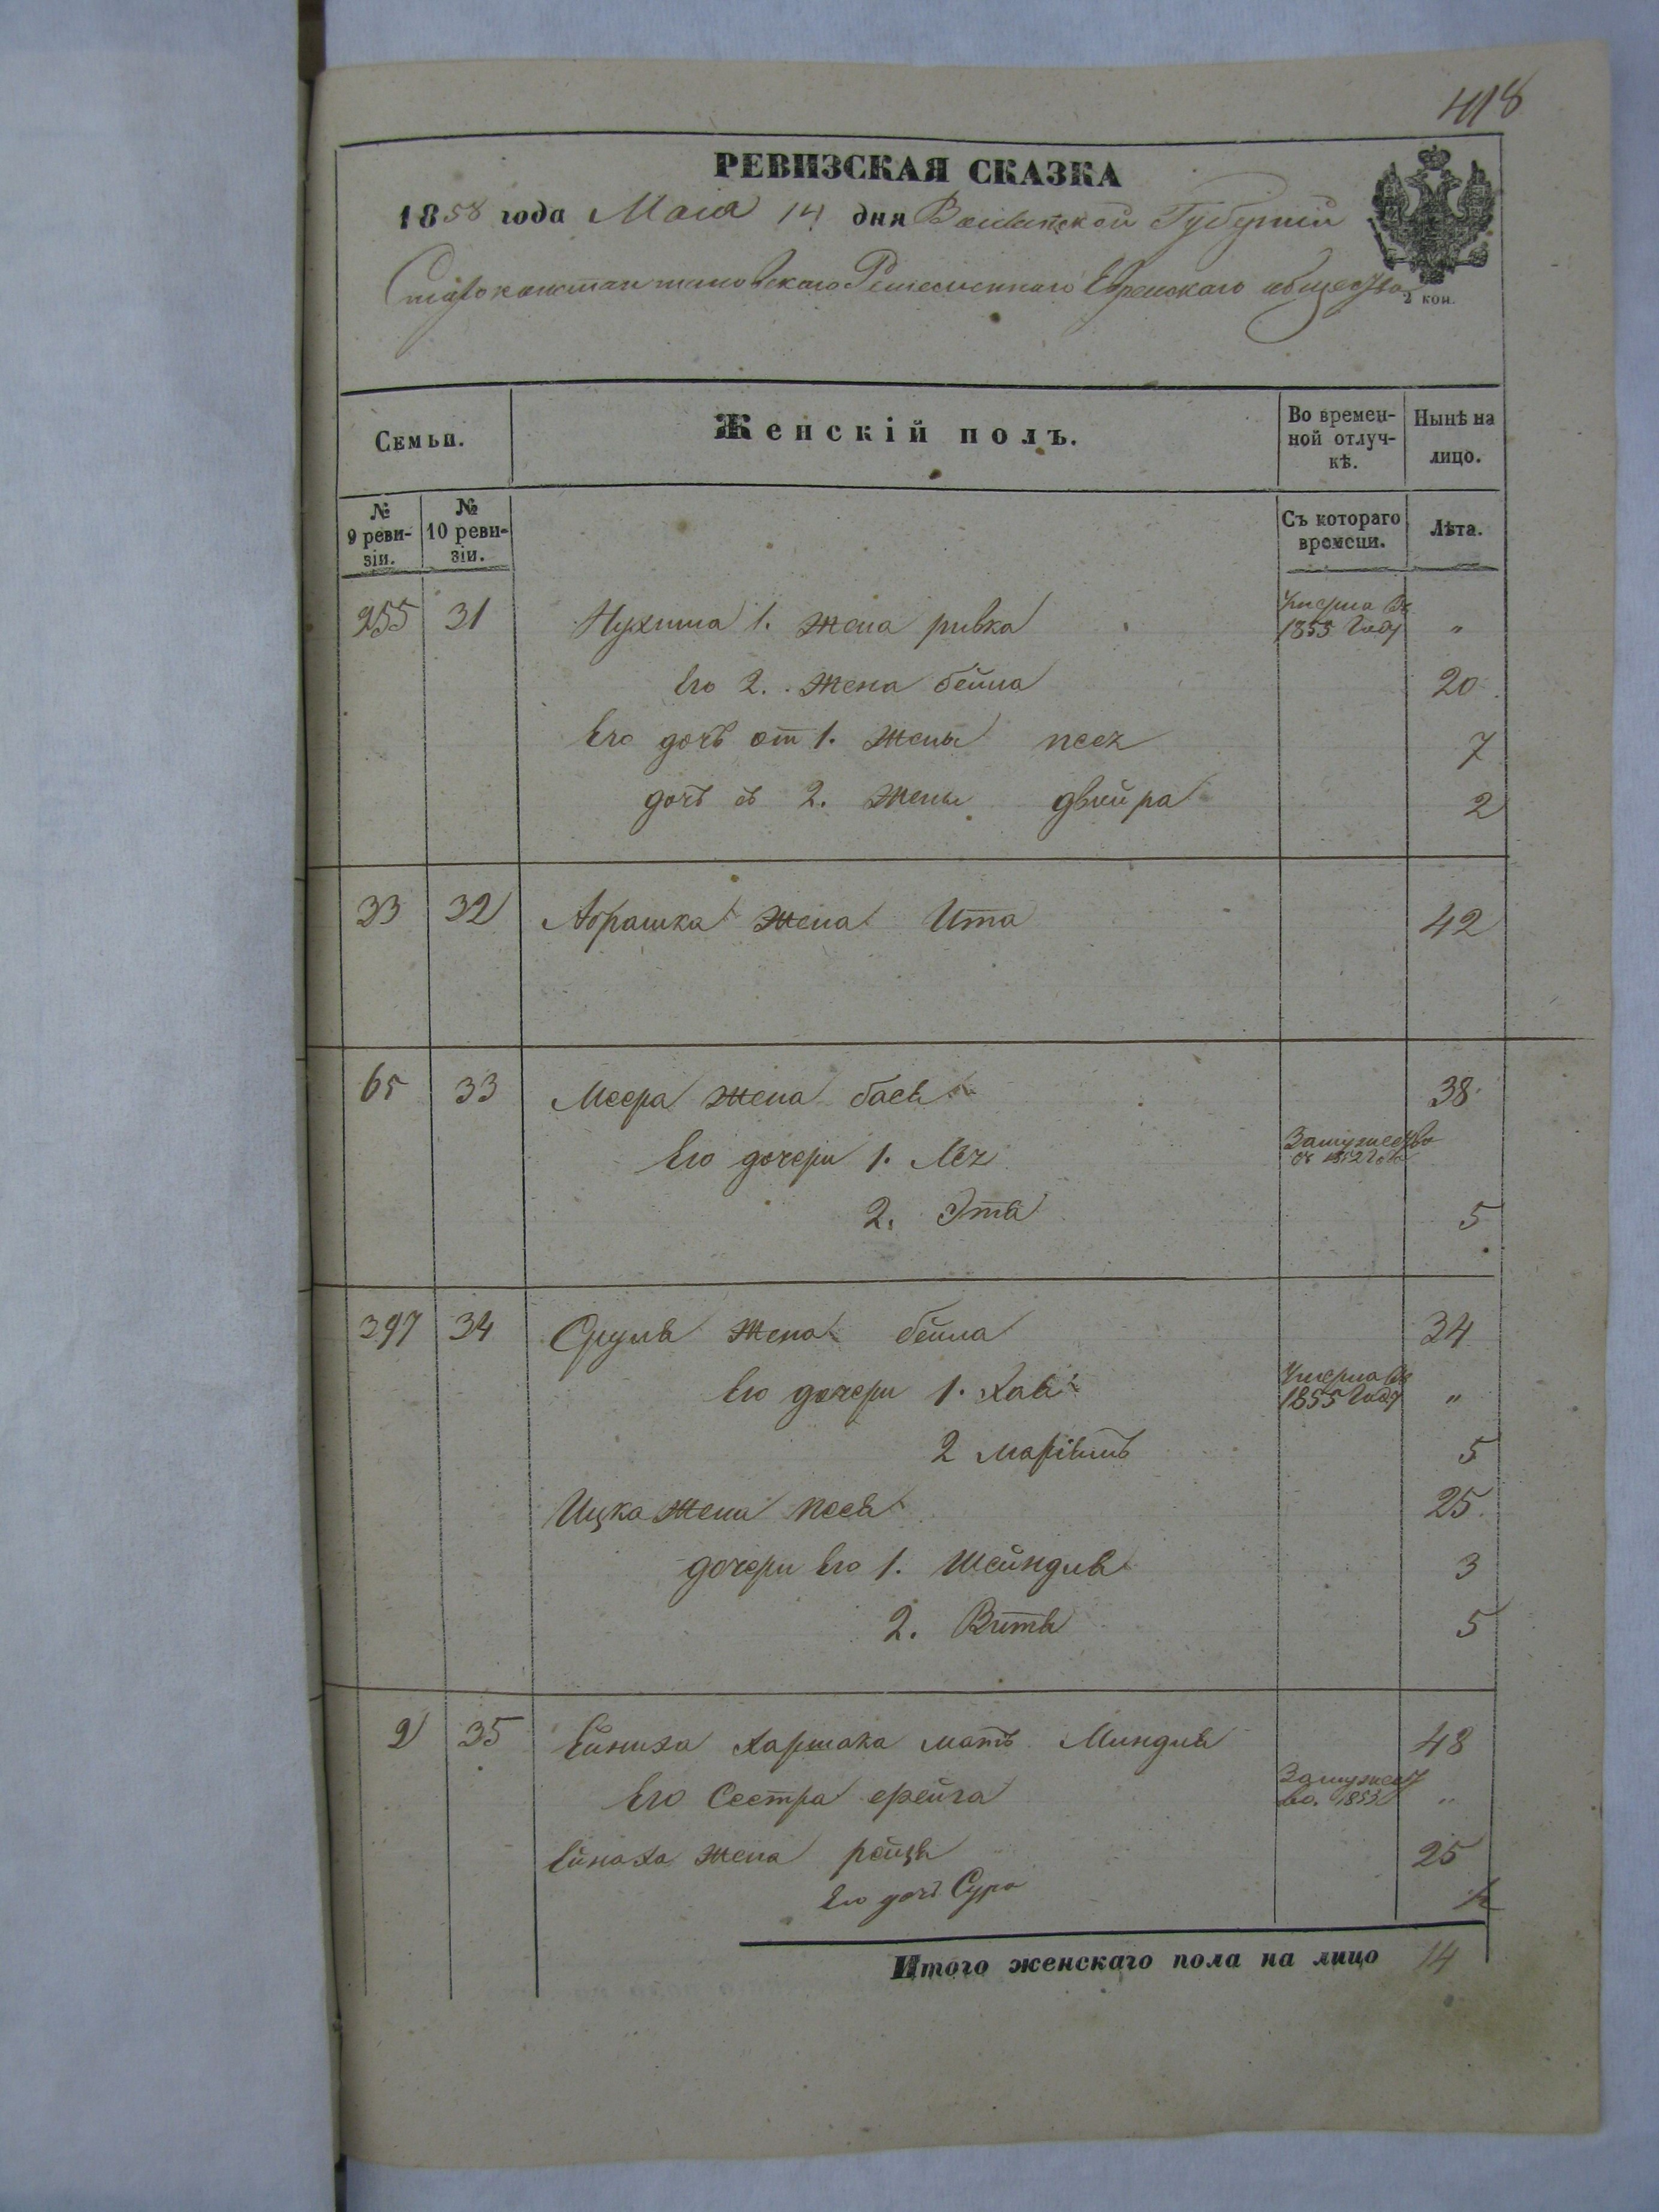 418
РЕВИЗСКАЯ СКАЗКА
1858 года Мая 14 дня Волынской Губернии
Староконстантиновского Ремесленнаго Еврейскаго общества
2 коп.
Семьи. Женскій полъ. Во времен-ной отлуч-кѣ. Нынѣ на лицо.
№ 9 реви-зіи. № 10 реви-зіи. Съ котораго времени. Лѣта.
255 31 Нухима 1. жена ривка умерла въ 1855 Году "
Его 2. жена бейла 20
Его дочь от 1. жены песя 7
дочь съ 2. жены двойра 2
33 32 Абрашка жена Ита 42
65 33 Меера жена бася 38
Его дочери 1. Лея Замужество
2. Этя 5
397 34 Сруля жена бейла 34
Его дочери 1. Хая умерла въ 1855 Году "
2 маріямъ 5
Ицка жена песя 25
дочери Его 1. Шейндля 3
2. Витя 5
2 35 мать Миндля 48
Его Сестра фейга Замужест во. 1853 "
жена рейзя 25
Его дочь Сура ½
Итого женскаго пола на лицо 14